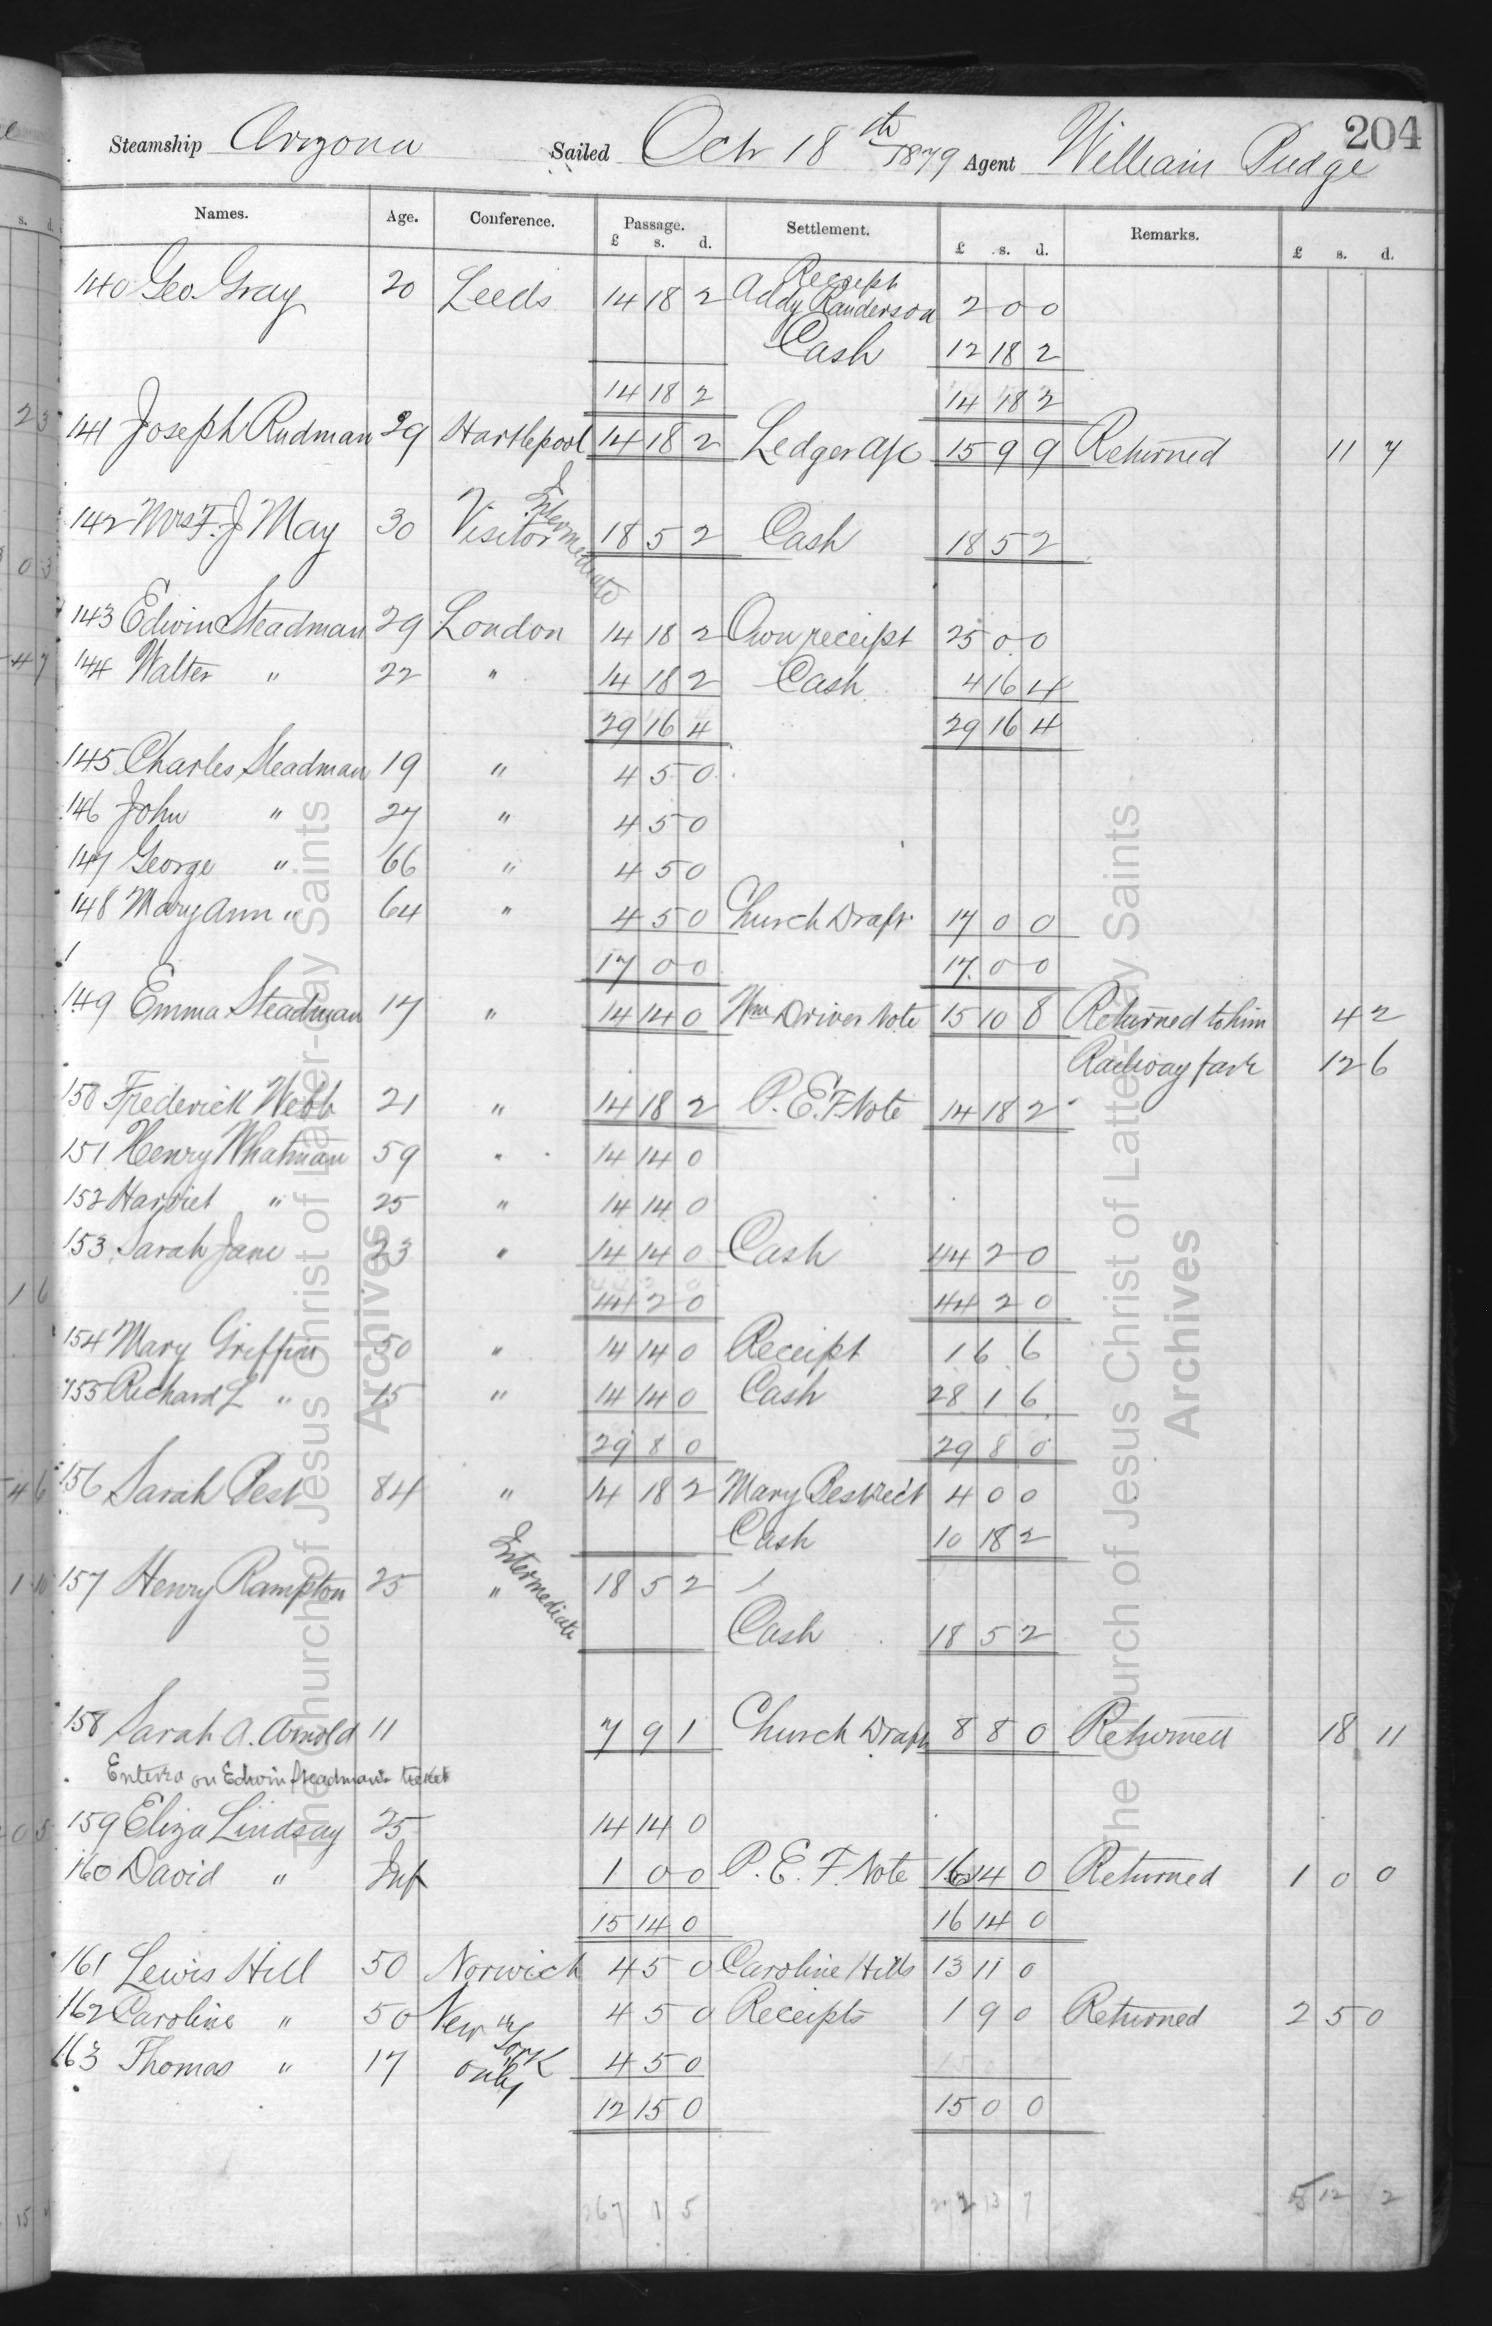 204
Steamship Arizona Sailed Oct 18th 1879 Agent William Budge
Names. Age. Conference. Passage. £ s. d. Settlement. £ s. d. Remarks. £ s. d.
140 Geo. Gray 20 Leeds 14 18 2 Receipt Addy Randerson 2 0 0
Cash 12 18 2
14 18 2 14 18 2
141 Joseph Rudman 29 Hartlepool 14 18 2 Ledger a/c 15 9 9 Returned 11 7
142 Mrs F. J May 30 Visitor Intermediate 18 5 2 Cash 18 5 2
143 Edwin Steadman 29 London 14 18 2 Own receipt 25 0 0
144 Walter " 22 " 14 18 2 Cash 4 16 4
29 16 4 29 16 4
145 Charles Steadman 19 " 4 5 0
146 John " 27 " 4 5 0
147 George " 66 " 4 5 0
148 Mary Ann " 64 " 4 5 0 Church Draft 17 0 0
17 0 0 17 0 0
149 Emma Steadman 17 " 14 14 0 Wm Driver Note 15 10 8 Returned to him 4 2
Railway fare 12 6
150 Frederick Webb 21 " 14 18 2 P. E. F. Note 14 18 2
151 Henry Whatman 59 " 14 14 0
152 Harriet " 25 " 14 14 0
153 Sarah Jane 23 " 14 14 0 Cash 44 2 0
44 2 0 44 2 0
154 Mary Griffin 50 " 14 14 0 Receipt 1 6 6
155 Richard L " 15 " 14 14 0 Cash 28 1 6
29 8 0 29 8 0
156 Sarah Pest 84 " 14 18 2 Mary Pest 4 0 0
Cash 10 18 2
157 Henry Rampton 25 " Intermediate 18 5 2
Cash 18 5 2
158 Sarah A. Arnold 11 7 9 1 Church Draft 8 8 0 Returned 18 11
Enterd on Edwin Steadman's ticket
159 Eliza Lindsay 25 14 14 0
160 David " Inf 1 0 0 P. E. F. Note 16 14 0 Returned 1 0 0
15 14 0 16 14 0
161 Lewis Hill 50 Norwich 4 5 0 Caroline Hills 13 11 0
162 Caroline " 50 New York 4 5 0 Receipts 1 9 0 Returned 2 5 0
163 Thomas " 17 only 4 5 0
12 15 0 15 0 0
267 1 5 13 7 5 12 2
The Church of Jesus Christ of Latter-day Saints
Archives
The Church of Jesus Christ of Latter-day Saints
Archives